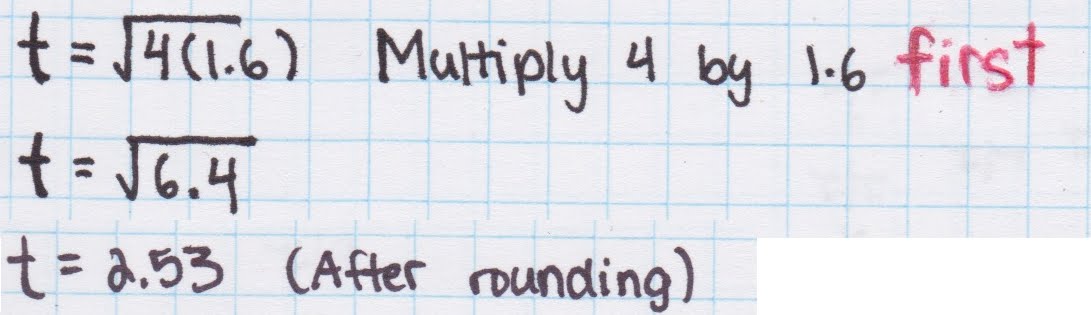 t = √4(1.6) Multiply 4 by 1.6 first
t = √6.4
t = 2.53 (After rounding)